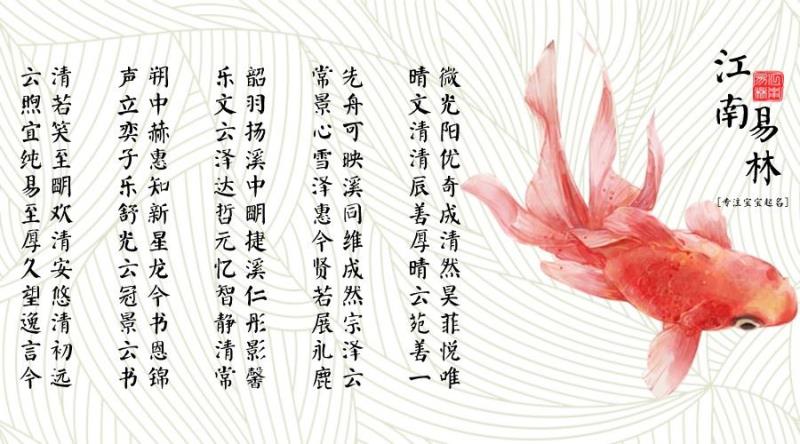 江南
易林
[专注宝宝起名]
微光阳优奇成清然昊菲悦唯
晴文清清辰善厚晴云苑善一
先舟可映溪同维成然宗泽云
常景心雪泽惠令贤若展礼鹿
韶羽扬溪中明捷溪仁彤影馨
乐文云泽达哲元忆智静清常
朔中赫惠知新星龙今书恩锦
声立奕子乐舒光云冠景云书
清若笑至明欢清安悠清初远
云煦宜纯易至厚久望逸言今